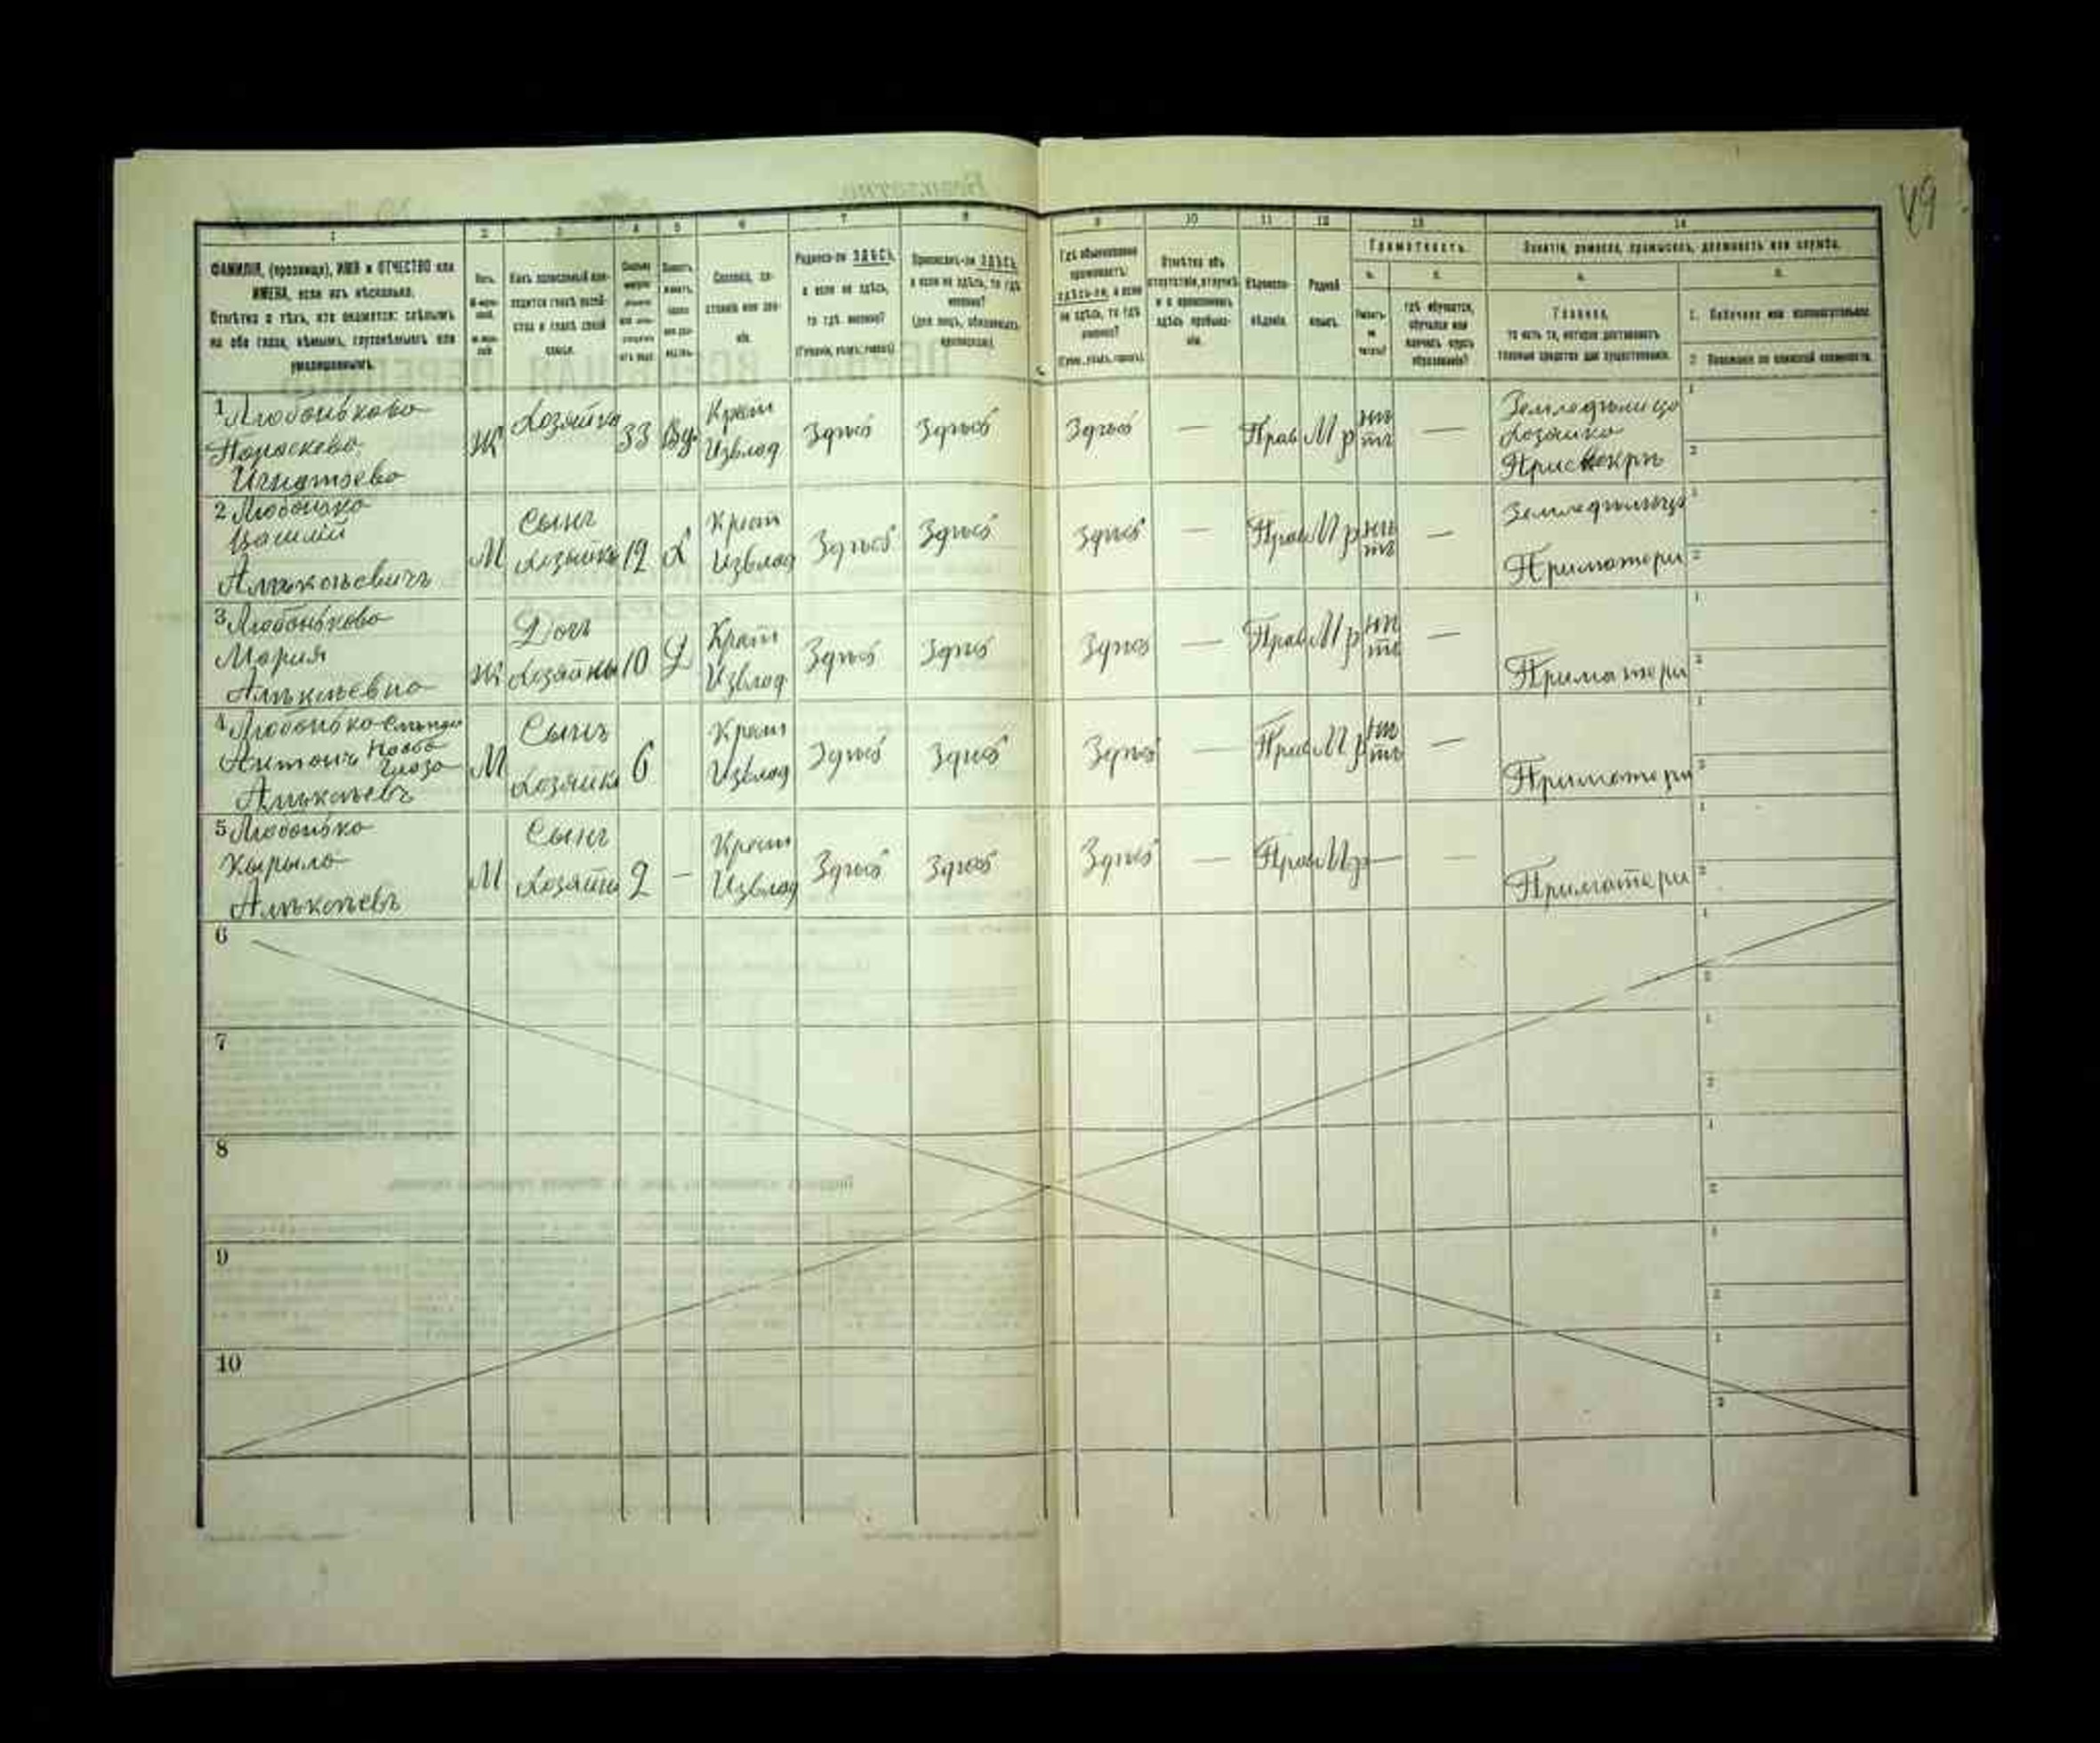 49
1 2 3 4 5 6 7 8 9 10 11 12 13 14
ФАМИЛІЯ, (прозвище), ИМЯ и ОТЧЕСТВО или
ИМЕНА, если ихъ нѣсколько.
Отмѣтка о тѣхъ, кто окажется: слѣпымъ
на оба глаза, нѣмымъ, глухонѣмымъ или
умалишеннымъ.
Полъ.
Какъ записанный приходится главѣ хозяйства и главѣ своей семьи.
Сословіе, состояніе или званіе.
Родился-ли ЗДѢСЬ,
а если не здѣсь,
то гдѣ именно?
(Губернія, уѣздъ, городъ)
Приписанъ-ли ЗДѢСЬ,
а если не здѣсь, то гдѣ
именно?
(для лицъ, обязанныхъ
припискою)
Гдѣ обыкновенно
проживаетъ:
здѣсь-ли, а если
не здѣсь, то гдѣ
именно?
(Губ., уѣздъ, городъ)
Отмѣтка объ
отсутствіи, отлучкѣ
и о временномъ
здѣсь пребываніи.
Вѣроисповѣданіе.
Родной
языкъ.
Грамотность.
а. б.
Умѣетъ-ли читать?
гдѣ обучается,
обучался или
кончилъ курсъ
образованія?
Занятіе, ремесло, промыселъ, должность или служба.
а. б.
Главное,
то есть то, которое доставляетъ
главныя средства для существованія.
1. Побочное или вспомогательное.
2. Положеніе по воинской повинности.
1 Любонькова
Параскева
Игнатьева
Ж Хозяйка 33 Вд.
Крест
Извлад
Здѣсь Здѣсь Здѣсь — Прав М р
нѣ
тъ
—
Земледѣлица
Хозяйка
1
2
2 Любонько
Василий
Алѣксѣевичъ
М
Сынъ
Хозяйки
12 Х
Крест
Извлад
Здѣсь Здѣсь Здѣсь — Прав М р
нѣ
тъ
—
Земледѣлецъ
Приматери
1
2
3 Любонькова
Мария
Алѣксѣевна
Ж
Дочь
Хозяйки
10 Д
Крест
Извлад
Здѣсь Здѣсь Здѣсь — Прав М р
нѣ
тъ
—
Приматери
1
2
4 Любонько Слѣпой
Антонъ Наоба
Глаза
Алѣксѣевъ
М
Сынъ
Хозяйки
6
Крест
Извлад
Здѣсь Здѣсь Здѣсь — Прав М р
нѣ
тъ
—
Приматери
1
2
5 Любонько
Кырыло
Алѣксѣевъ
М
Сынъ
Хозяйки
2 —
Крест
Извлад
Здѣсь Здѣсь Здѣсь — Прав М р — —
Приматери
1
2
6
1
2
7
1
2
8
1
2
9
1
2
10
1
2